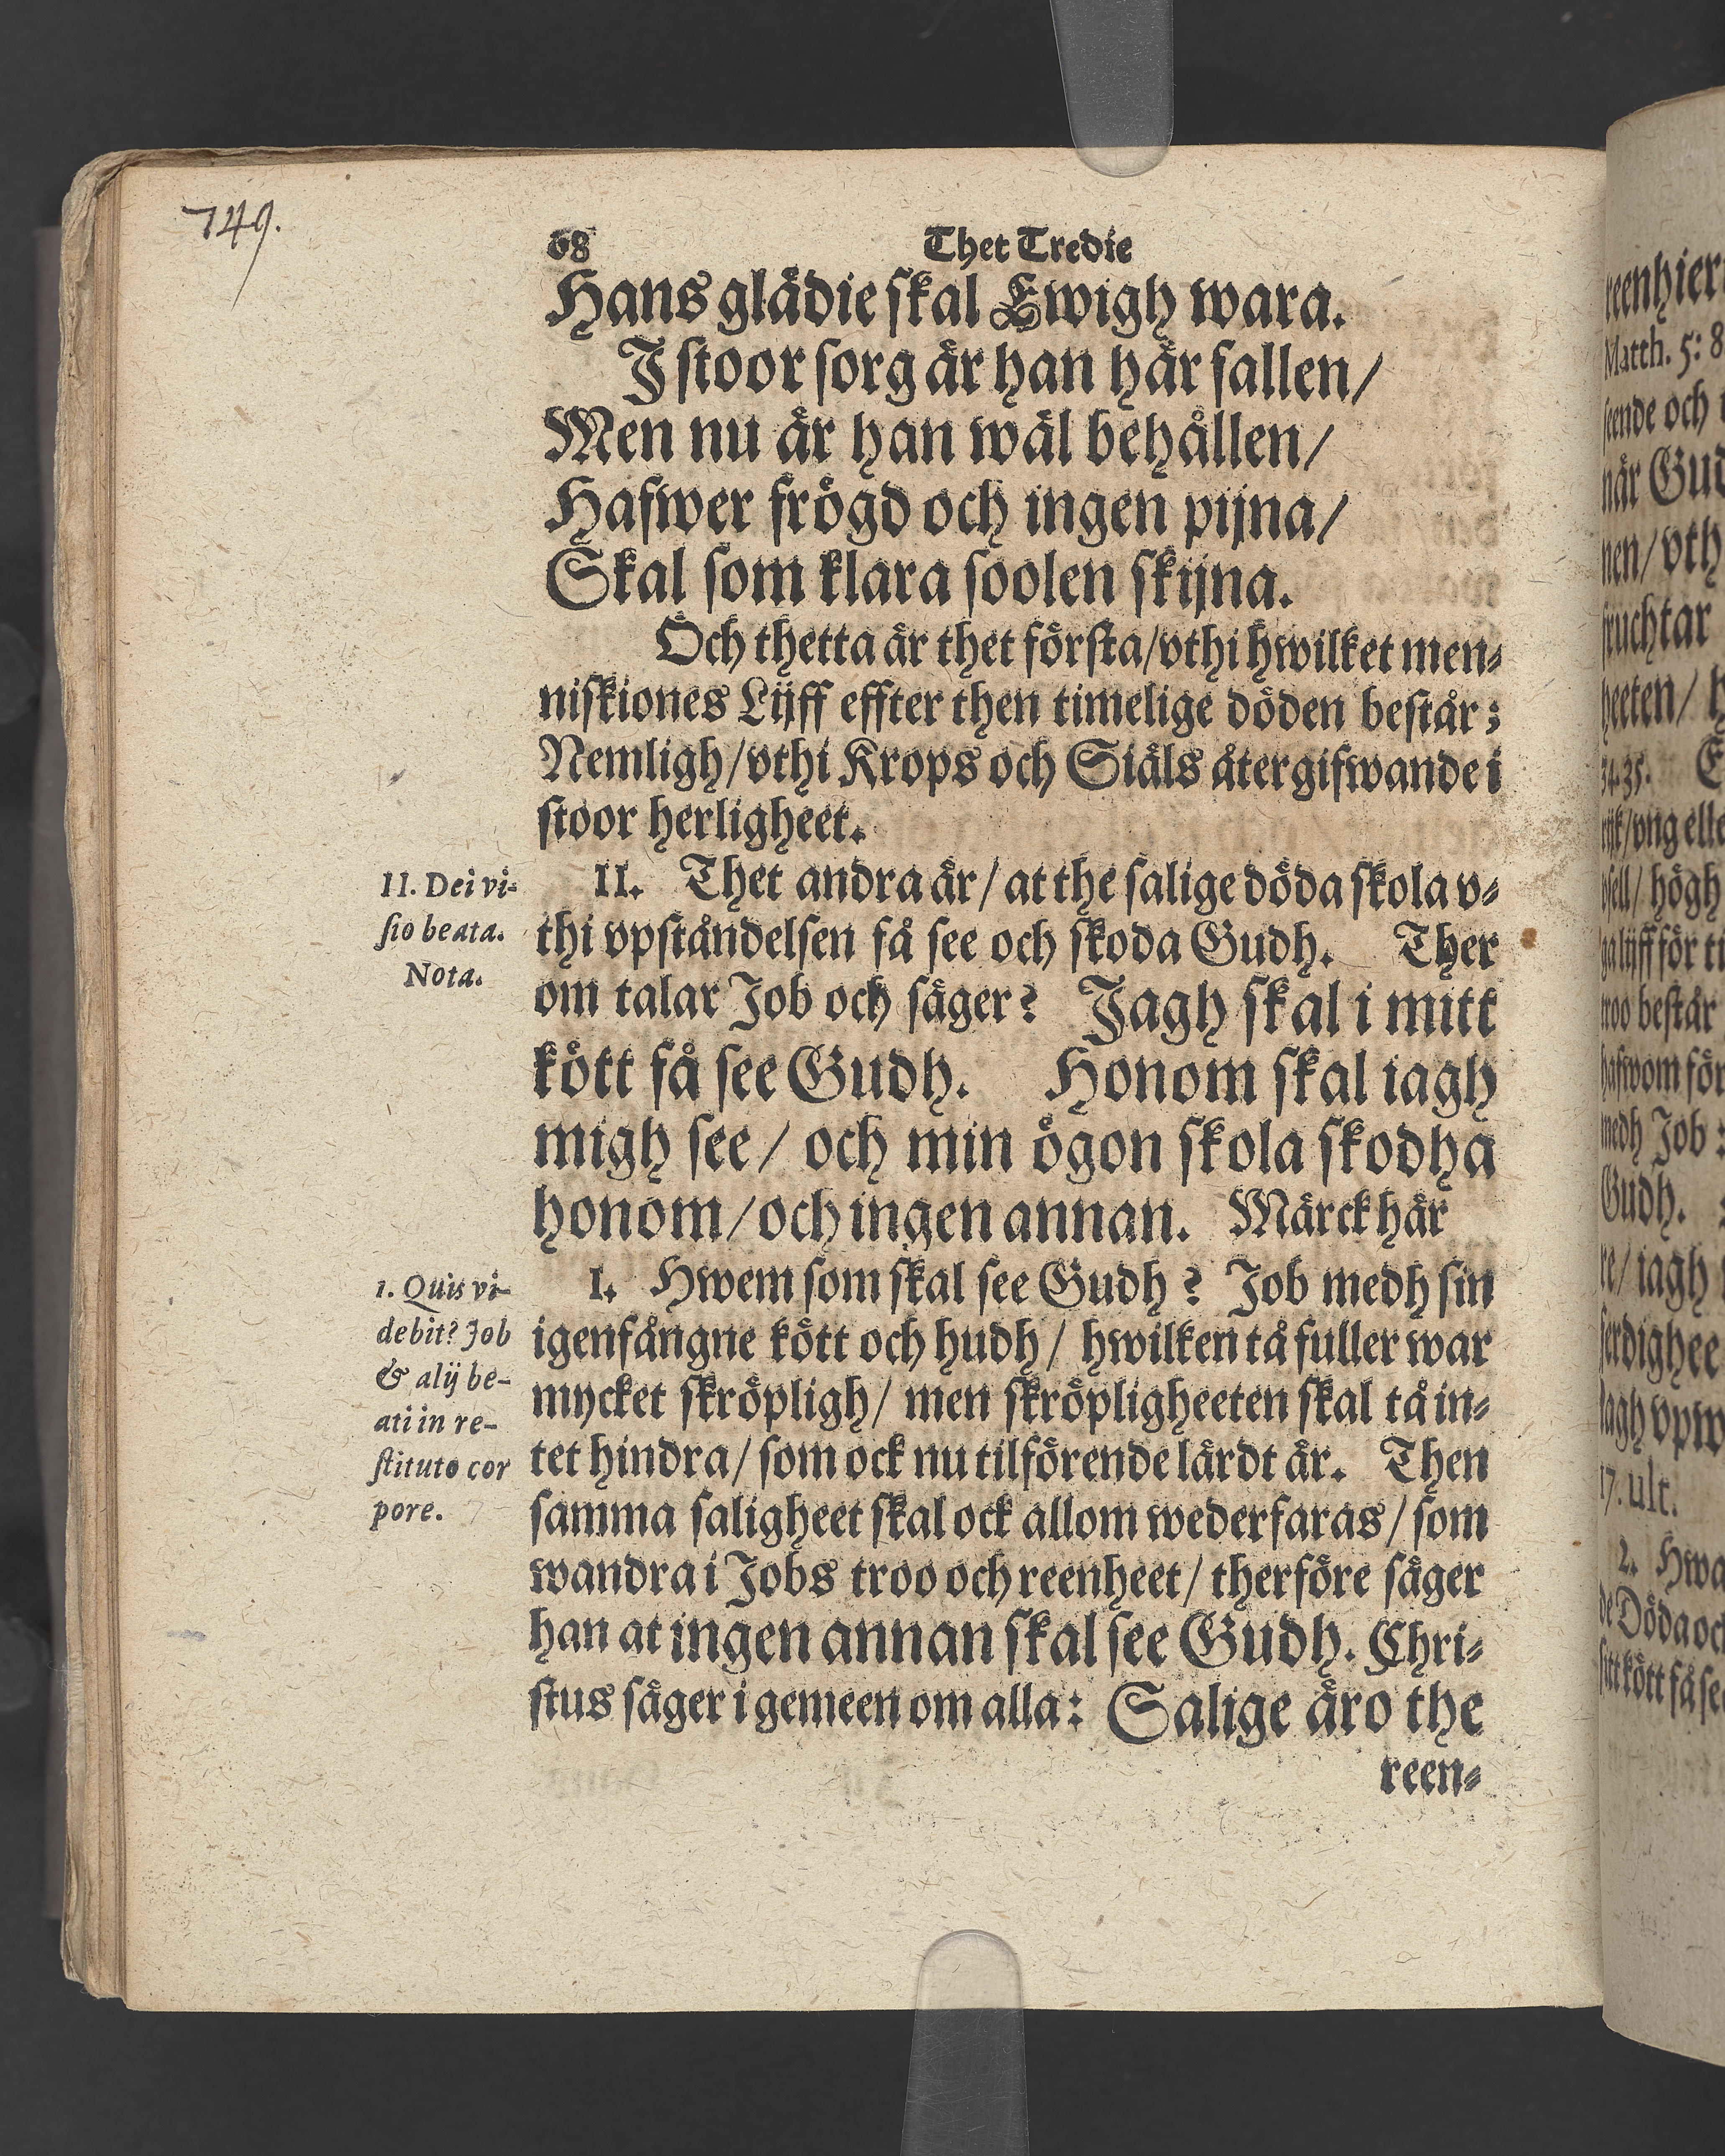 749.
68 Thet Tredie
Hans glädie skal Ewigh wara.
I stoor sorg är han här fallen/
Men nu är han wäl behållen/
Hafwer frögd och ingen pijna/
Skal som klara soolen skijna.
Och thetta är thet första/vthi hwilket men-
niskiones Lijff effter then timelige döden består;
Nemligh/vthi Krops och Siäls återgifwande i
stoor herligheet.
II. Dei vi-
sio beata.
Nota.
II. Thet andra är/at the salige döda skola v-
thi vpståndelsen få see och skoda Gudh. Ther
om talar Job och säger? Jagh skal i mitt
kött få see Gudh. Honom skal iagh
migh see/ och min ögon skola skodha
honom/och ingen annan. Märck här
1. Quis vi-
debit? Job
& alij be-
ati in re-
stituto cor
pore.
I. Hwem som skal see Gudh? Job medh sin
igenfångne kött och hudh/ hwilken tå fuller war
mycket skröpligh/ men skröpligheeten skal tå in-
tet hindra/som ock nu tilförende lärdt är. Then
samma saligheet skal ock allom wederfaras/som
wandra i Jobs troo och reenheet/therföre säger
han at ingen annan skal see Gudh. Chri-
stus säger i gemeen om alla: Salige äro the
reen-
reenhier
Matth. 5: 8
seende och
när Gud
nen/vth
fruchtar
heeten/
34.35.
rijk/vng elle
högh
ga lijff för
troo består
hafwom för
medh Job:
Gudh.
re/iagh
ferdighee
Jagh vpw
17. ult.
2. Hwa
de Döda och
sitt kött få se